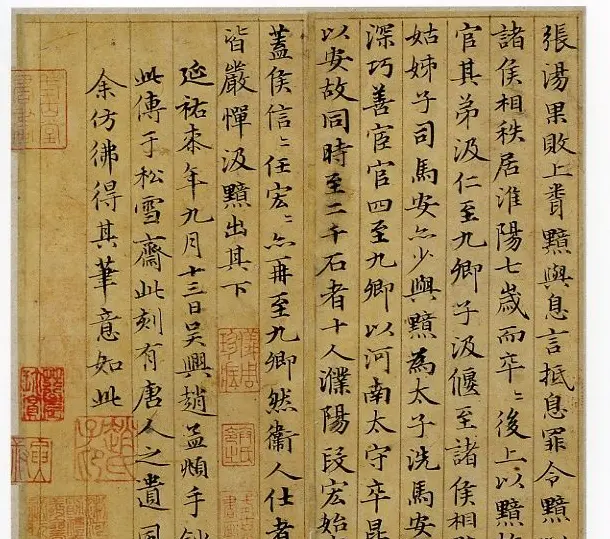 張湯果敗上聞黯與息言抵息罪令黯以
諸侯相秩居淮陽七歲而卒〻後上以黯
官其弟汲仁至九卿子汲偃至諸侯相
姑姊子司馬安亦少與黯為太子洗馬安
深巧善宦官四至九卿以河南太守卒昆
以安故同時至二千石者十人濮陽段宏始
蓋侯信〻任宏〻亦再至九卿然衛人仕者
皆嚴憚汲黯出其下
延祐柒年九月十三日吳興趙孟頫手鈔
此傳于松雪齋此刻有唐人之遺風
余仿彿得其筆意如此